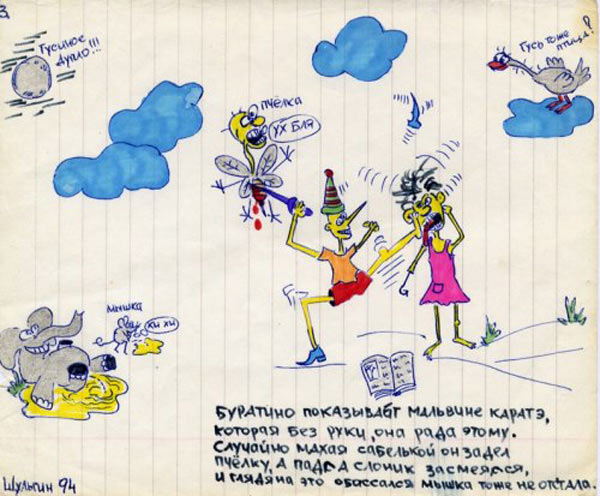 Гусиное
Дупло!!!
Гусь тоже
птица!
пчёлка
УХ БЛЯ
мышка
хи хи
БУРАТИНО ПОКАЗЫВАЕТ МАЛЬВИНЕ КАРАТЭ,
КОТОРАЯ БЕЗ РУКИ, ОНА РАДА ЭТОМУ.
СЛУЧАЙНО МАХАЯ САБЕЛЬКОЙ ОН ЗАДЕЛ
ПЧЁЛКУ, А ПАДЛА СЛОНИК ЗАСМЕЯЛСЯ,
И ГЛЯДЯ НА ЭТО ОБАССАЛСЯ МЫШКА ТОЖЕ НЕ ОТСТАЛА.
Шульгин 94